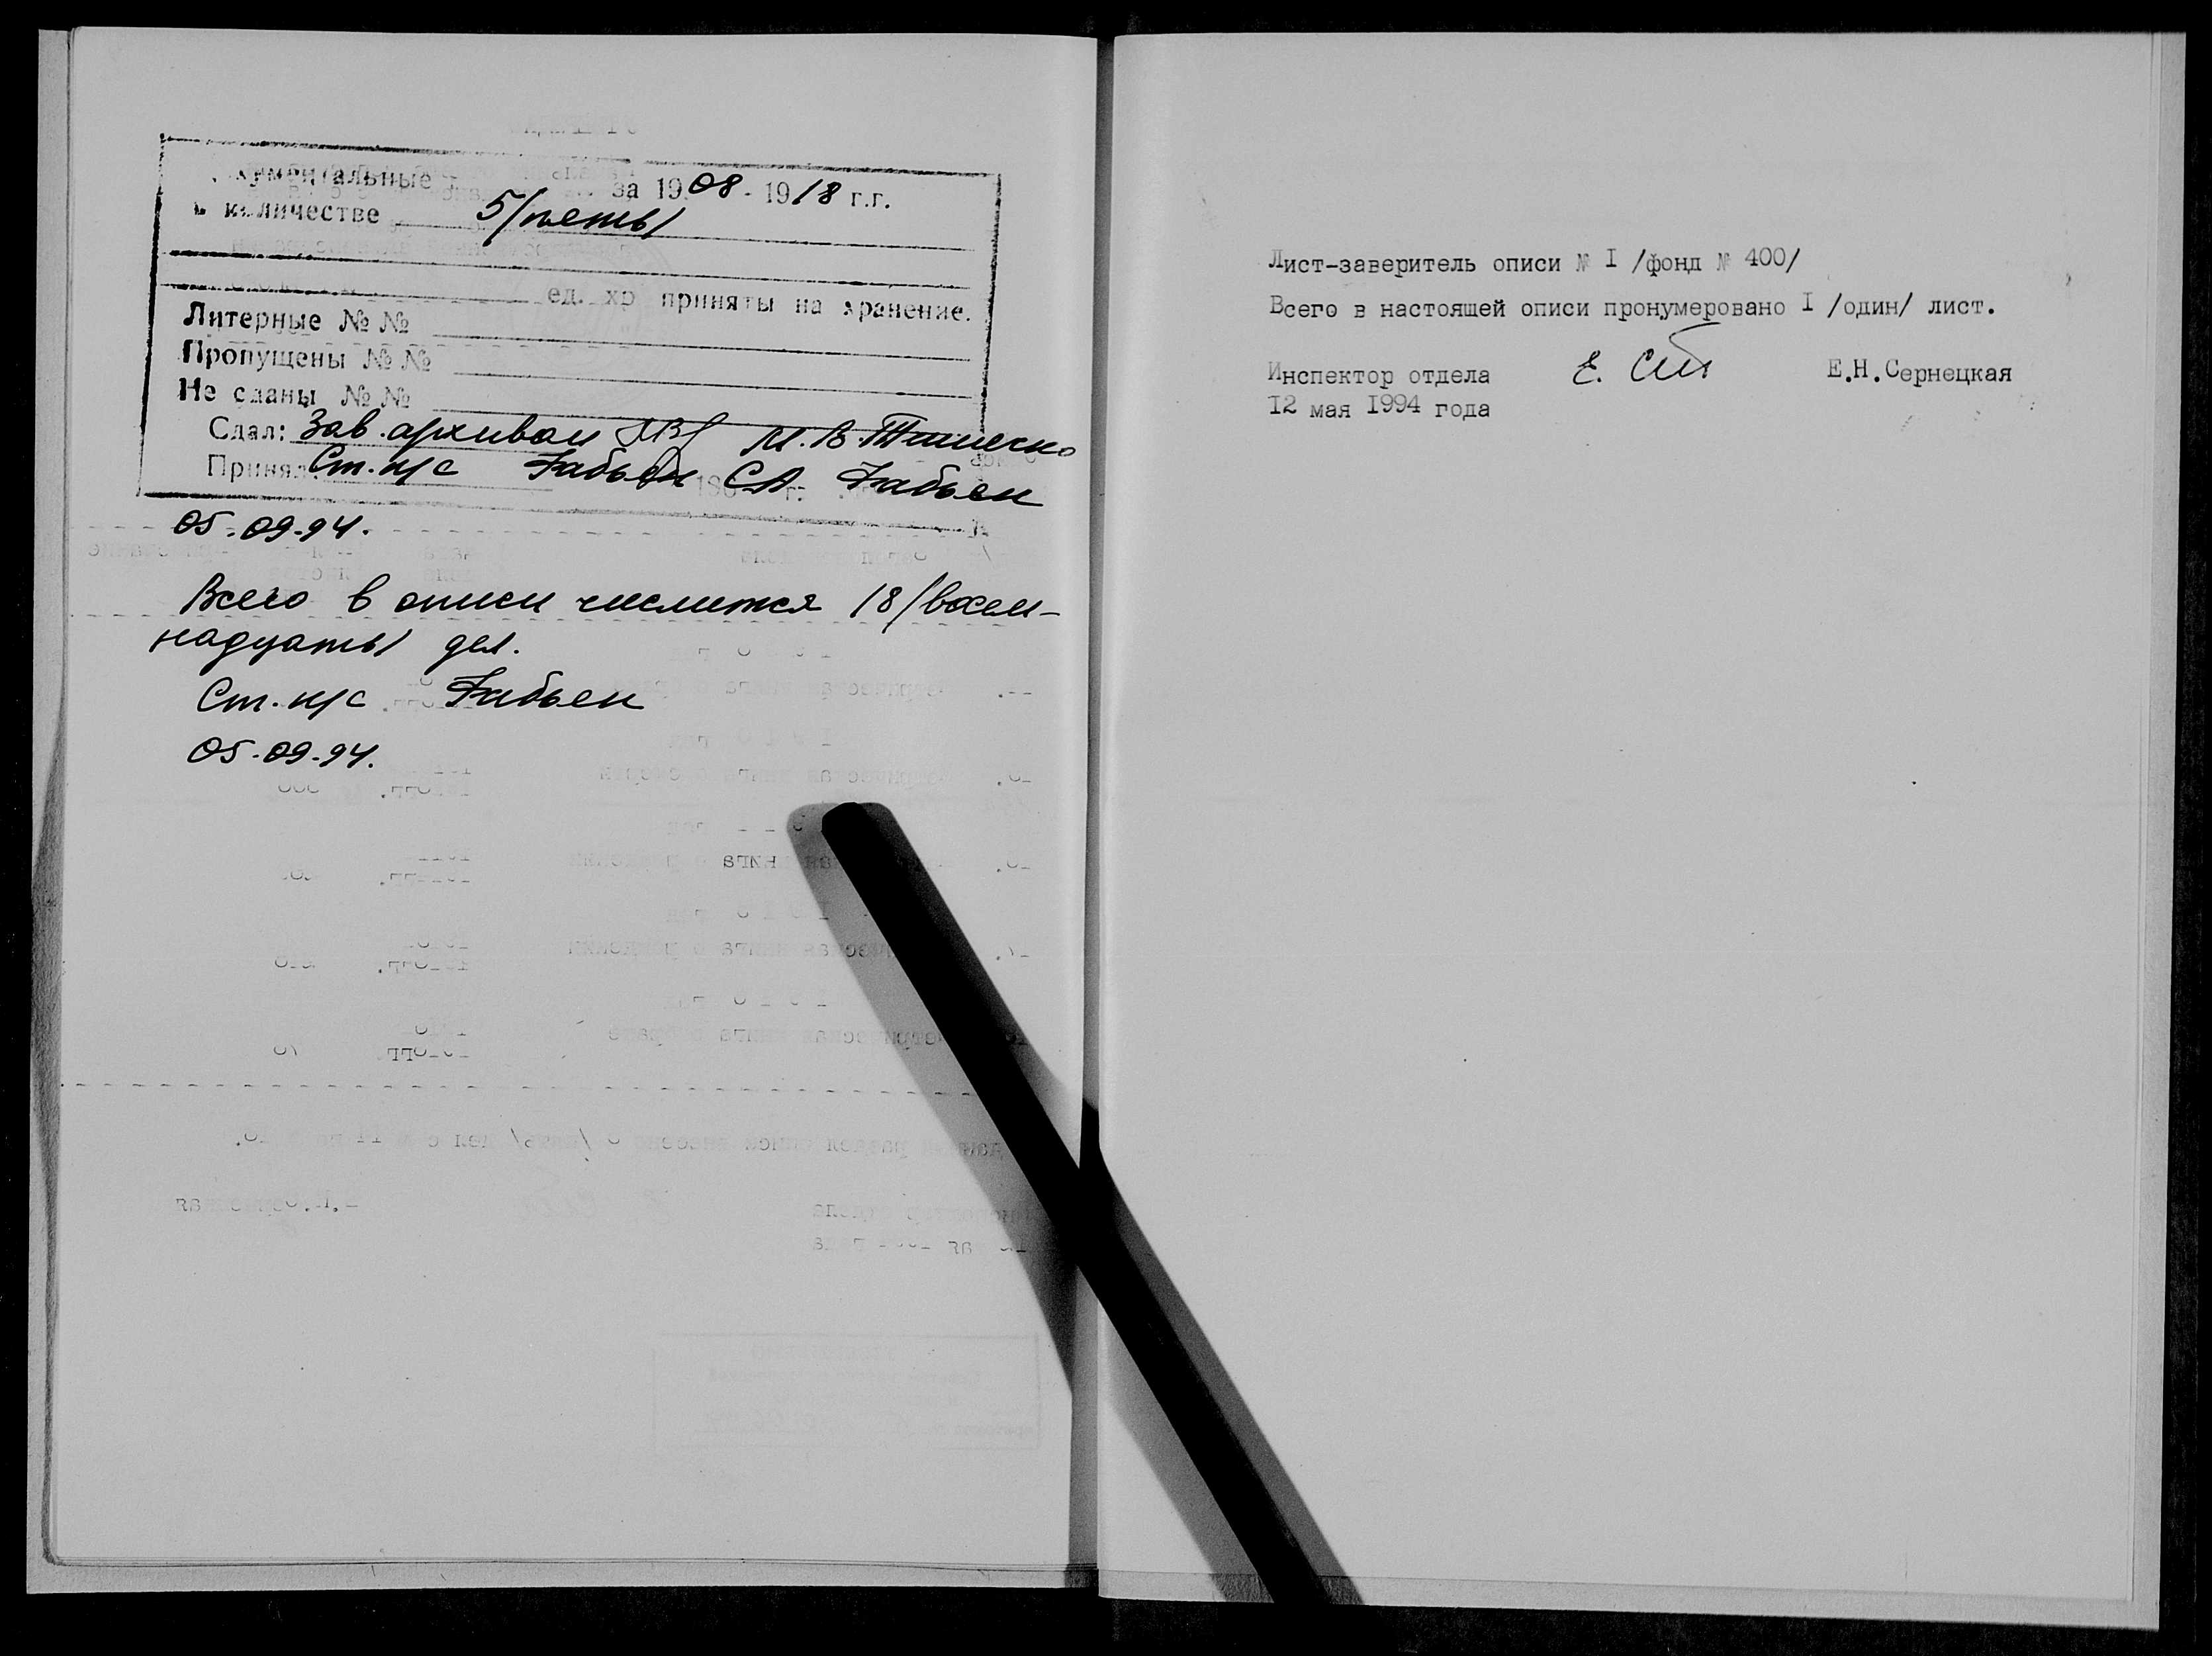 документальные за 1908-1918 г.г.
в количестве 5/пять/
ед. хр приняты на хранение.
Литерные №№
Пропущены №№
Не сданы №№
Сдал: Зав. архивом М.В.
Принял: Ст. н/с Бабьен С.А. Бабьен
05.09.94.
Всего в описи числится 18/восем-
надцать/ дел.
Ст. н/с Бабьен
05.09.94.
Лист-заверитель описи № I /фонд № 400/
Всего в настоящей описи пронумеровано I /один/ лист.
Инспектор отдела Е.Н.Сернецкая
I2 мая I994 года